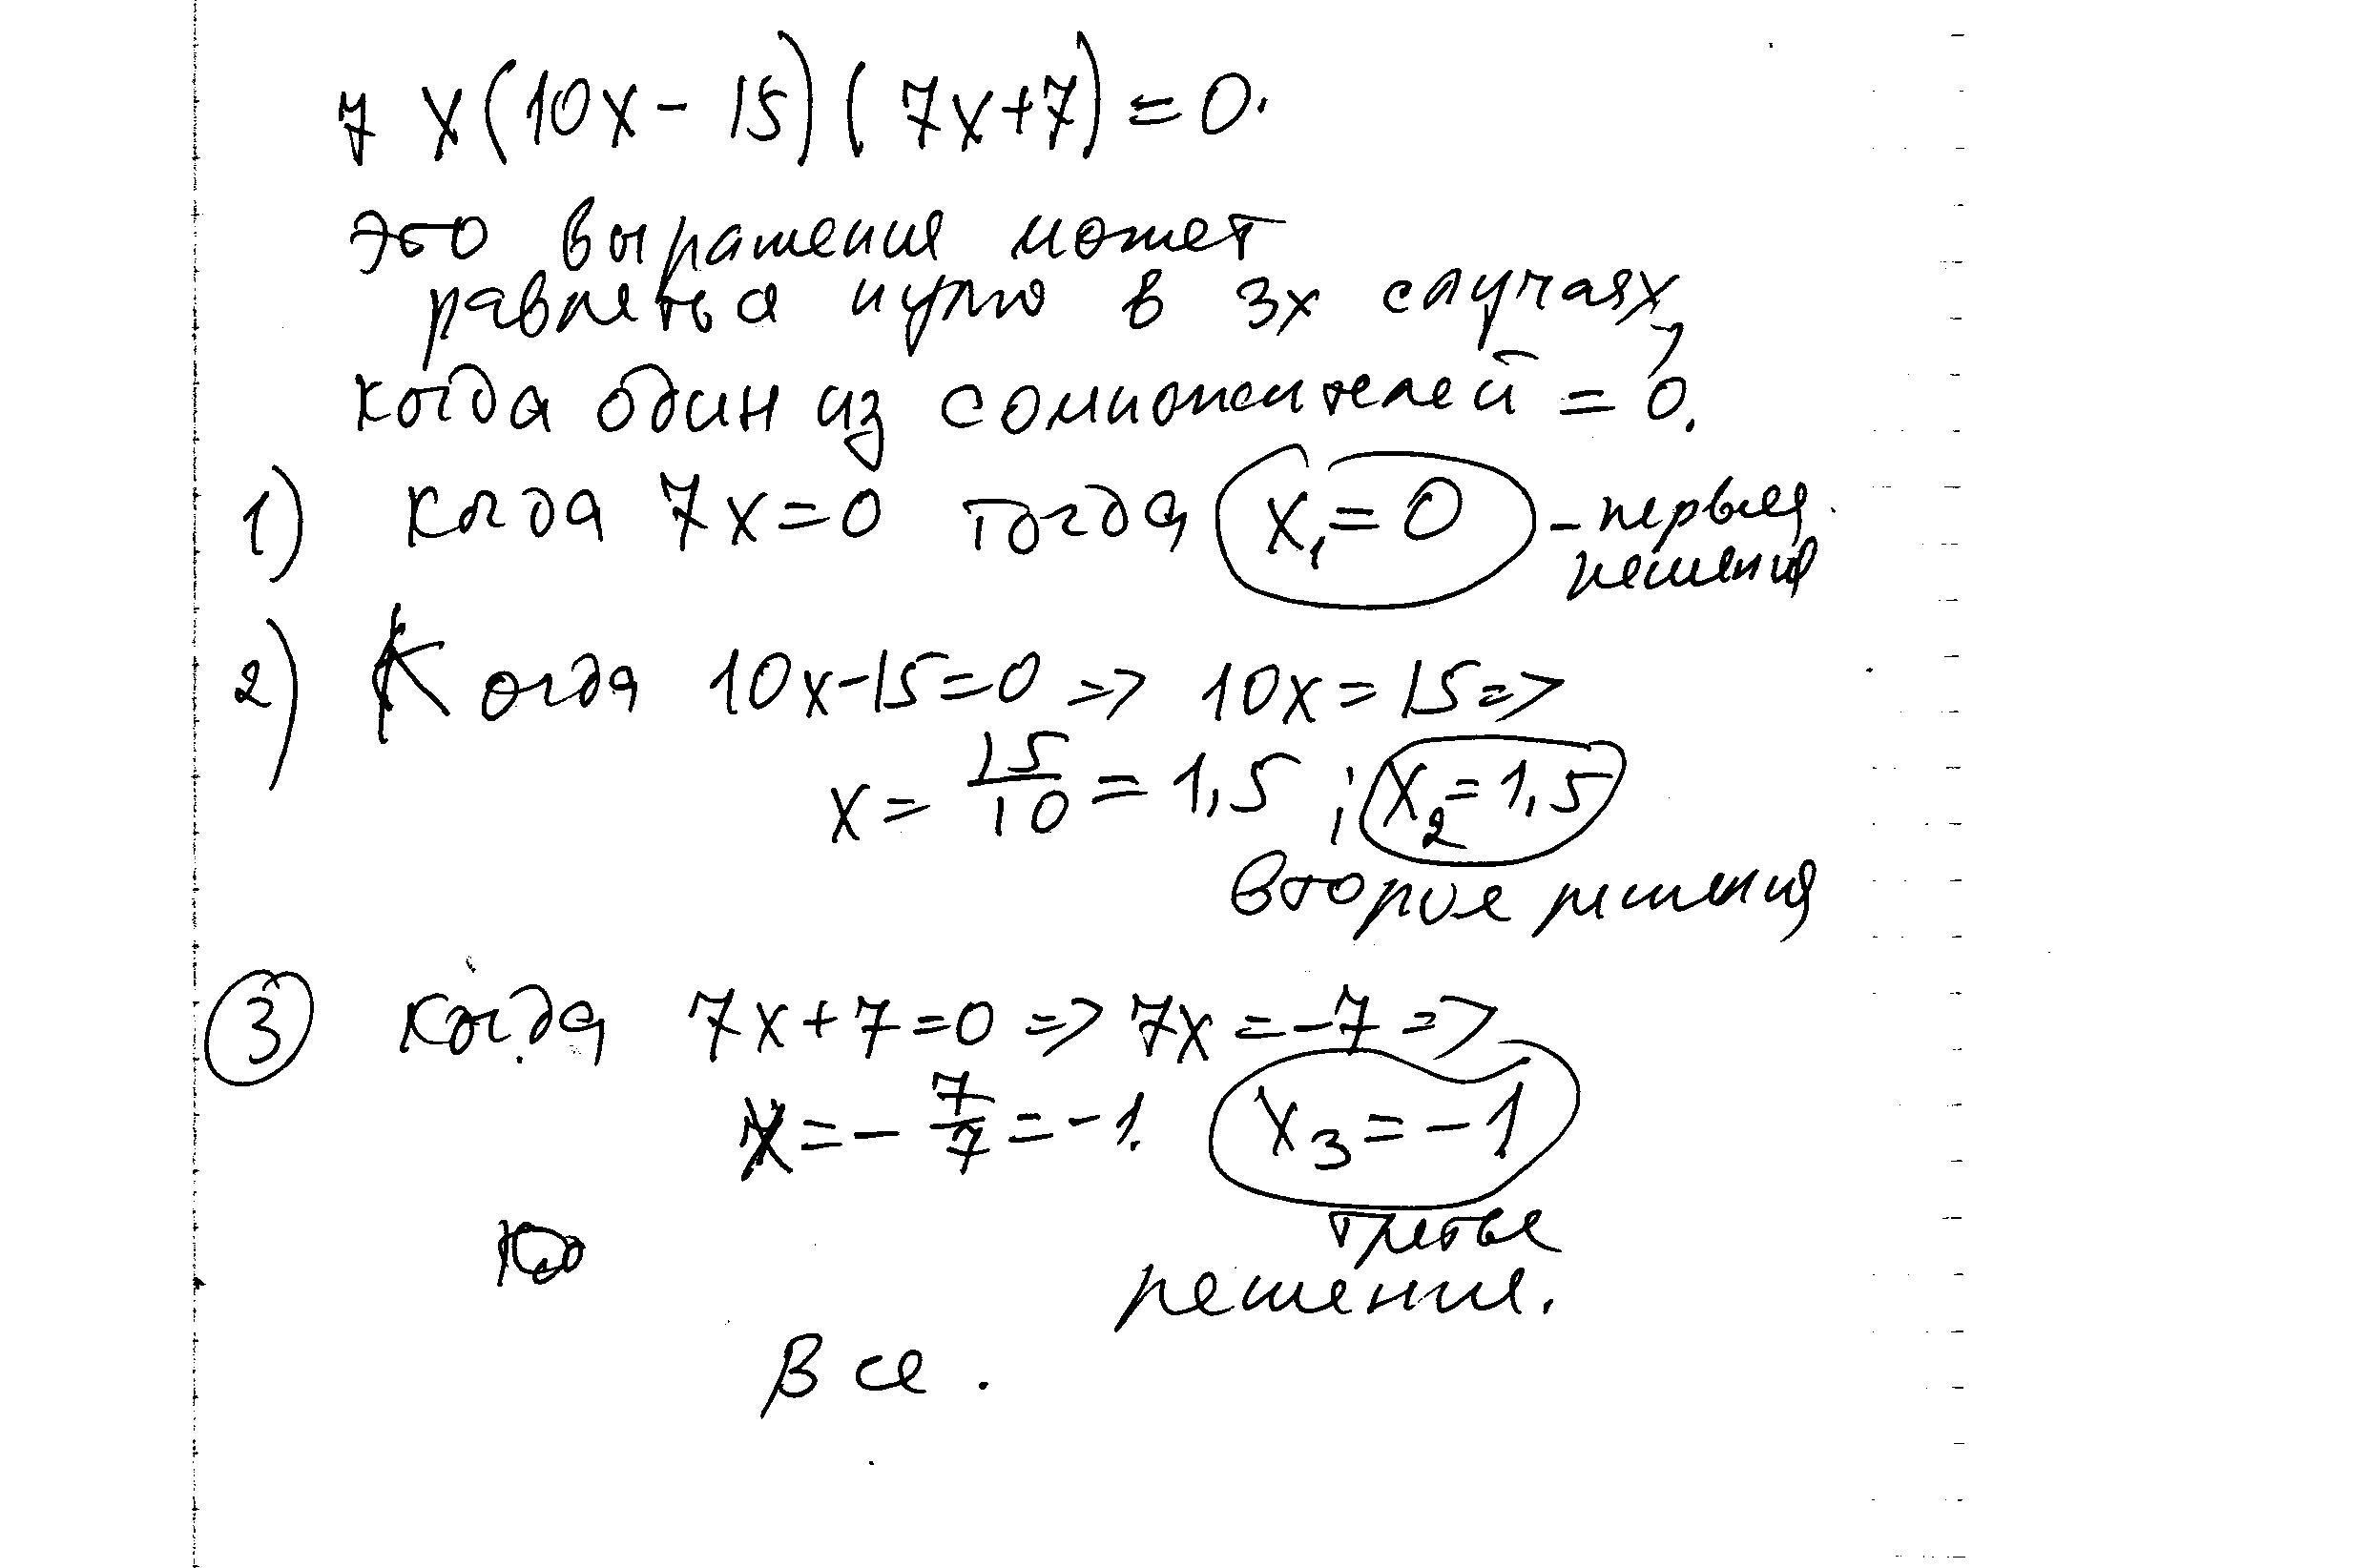 7 x(10x - 15)(7x+7) = 0.
это выражения может
равняться нулю в 3х случаях,
когда один из сомножителей = 0.
1) когда 7x=0 тогда x₁=0 - первыя
решения
2) Когда 10x-15=0 => 10x=15 =>
x = 15/10 = 1,5 ; x₂=1,5
второе решения
3 когда 7x+7=0 => 7x=-7 =>
x = - 7/7 = -1. x₃ = -1
третье
решения.
Все.